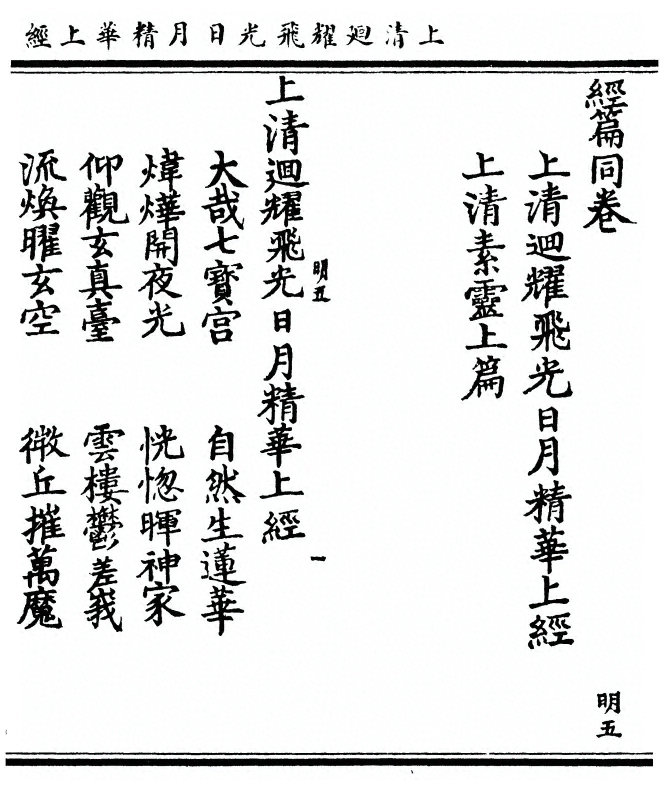 上清廻耀飛光日月精華上經
經篇同卷
上清廻耀飛光日月精華上經
明五
上清素靈上篇
上清廻耀飛光日月精華上經
明五
一
大哉七寶宮 自然生蓮華
煒燁開夜光 恍惚暉神家
仰觀玄真臺 雲樓鬱差峩
流煥曜玄空 徴丘摧萬魔